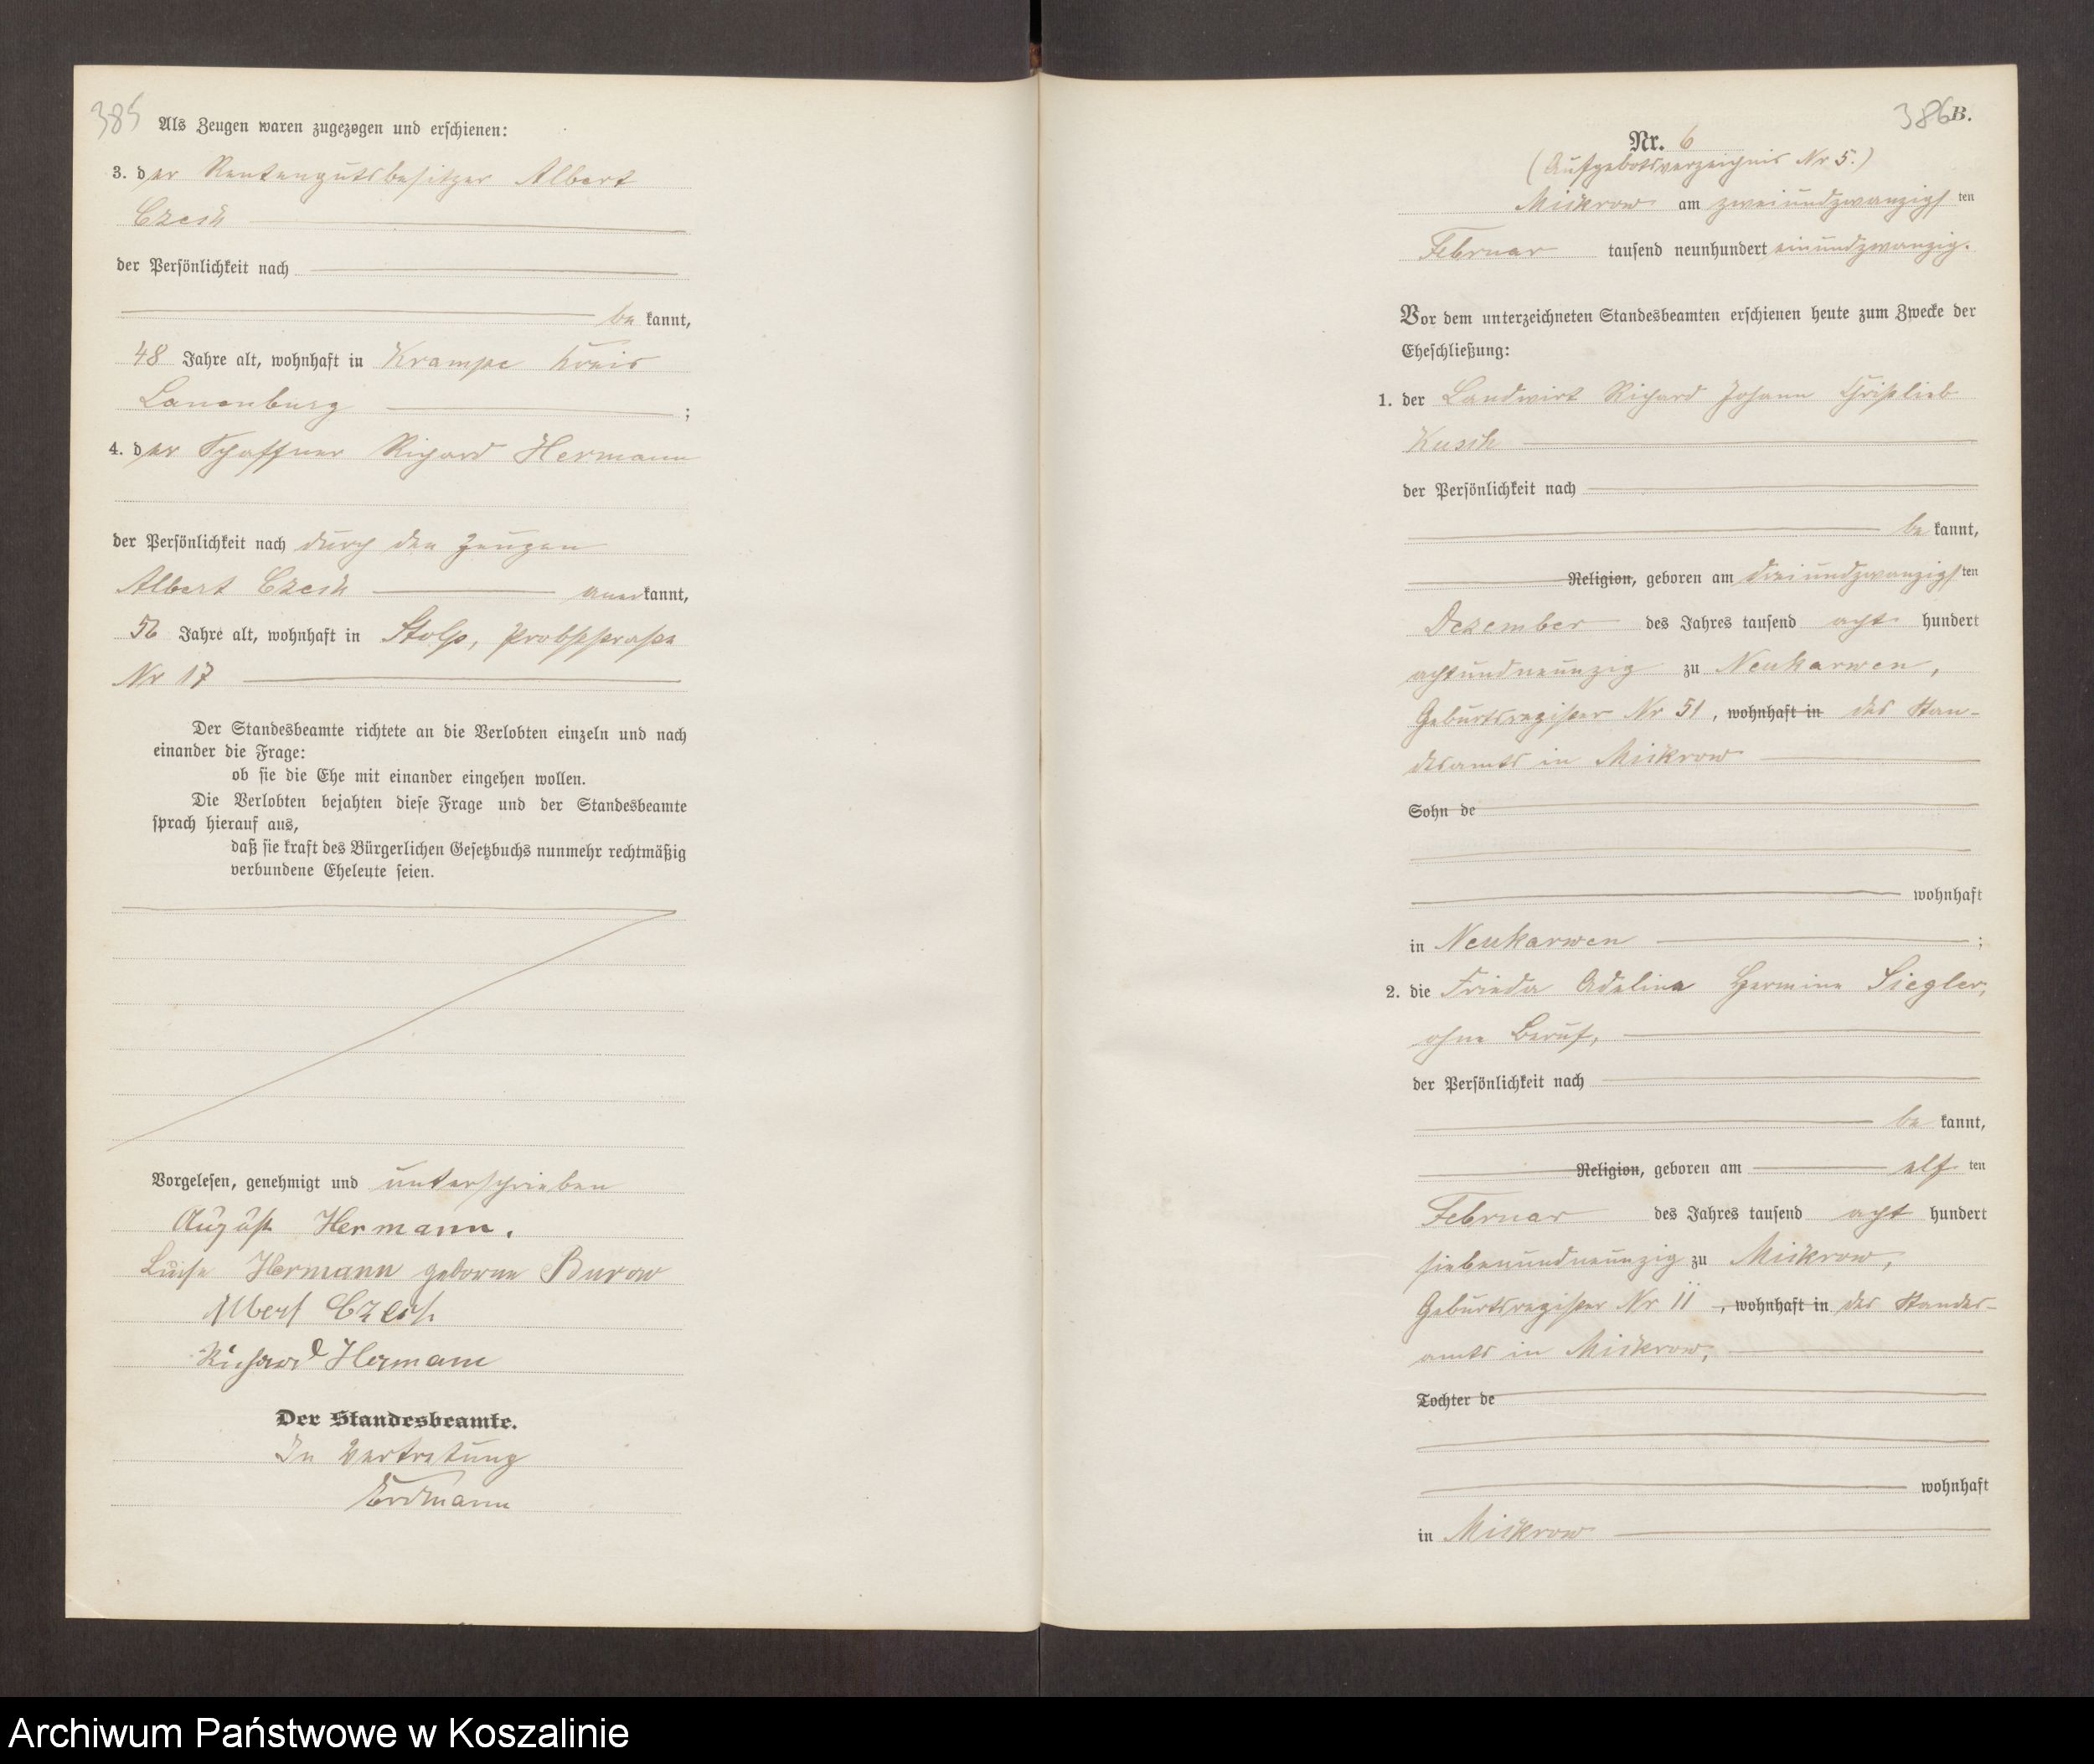 385
Als Zeugen waren zugezogen und erschienen:
3. der Rentengutsbesitzer Albert
Czech
der Persönlichkeit nach
be kannt,
48 Jahre alt, wohnhaft in Krampe Kreis
Lauenburg ;
4. der Schaffner Richard Hermann
der Persönlichkeit nach durch den Zeugen
Albert Czech anerkannt,
56 Jahre alt, wohnhaft in Stolp, Probststraße
Nr 17
Der Standesbeamte richtete an die Verlobten einzeln und nach
einander die Frage:
ob sie die Ehe mit einander eingehen wollen.
Die Verlobten bejahten diese Frage und der Standesbeamte
sprach hierauf aus,
daß sie kraft des Bürgerlichen Gesetzbuchs nunmehr rechtmäßig
verbundene Eheleute seien.
Vorgelesen, genehmigt und unterschrieben
August Hermann.
Luise Hermann geborne Burow
Albert Czech
Richard Hermann
Der Standesbeamte.
In Vertretung
Erdmann
386 B.
Nr. 6
(Aufgebotsverzeichnis Nr 5.)
Mickrow am zweiundzwanzigsten
Februar tausend neunhundert einundzwanzig.
Vor dem unterzeichneten Standesbeamten erschienen heute zum Zwecke der
Eheschließung:
1. der Landwirt Richard Johann Christlieb
Kusch
der Persönlichkeit nach
be kannt,
Religion, geboren am dreiundzwanzigsten
Dezember des Jahres tausend acht hundert
achtundneunzig zu Neukarwen,
Geburtsregister Nr 51, wohnhaft in des Stan-
desamts in Mickrow
Sohn de
wohnhaft
in Neukarwen ;
2. die Frieda Adeline Hermine Siegler,
ohne Beruf,
der Persönlichkeit nach
be kannt,
Religion, geboren am elf ten
Februar des Jahres tausend acht hundert
siebenundneunzig zu Mickrow,
Geburtsregister Nr 11, wohnhaft in des Standes-
amts in Mickrow,
Tochter de
wohnhaft
in Mickrow
Archiwum Państwowe w Koszalinie